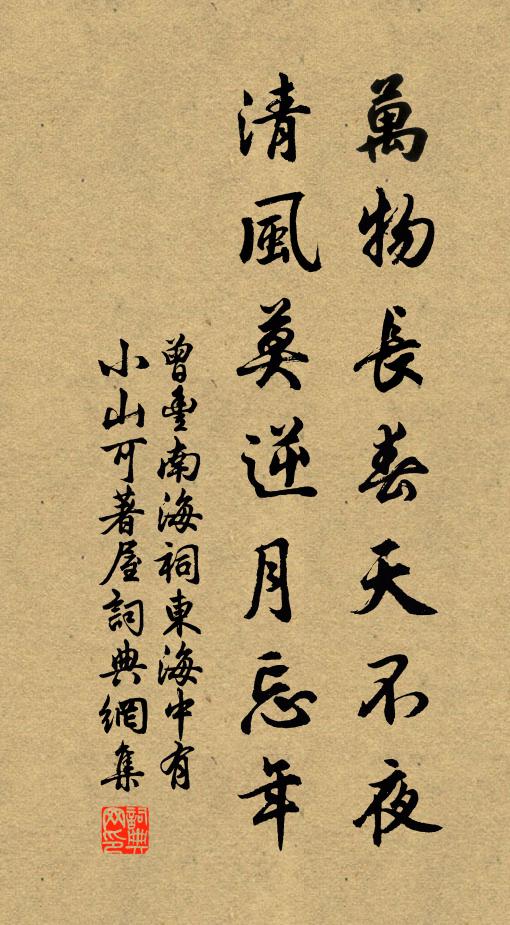 萬物長春天不夜
清風莫逆月忘年
曾豐南海祠東海中有
小山可著屋詞典網集
詞典
网印